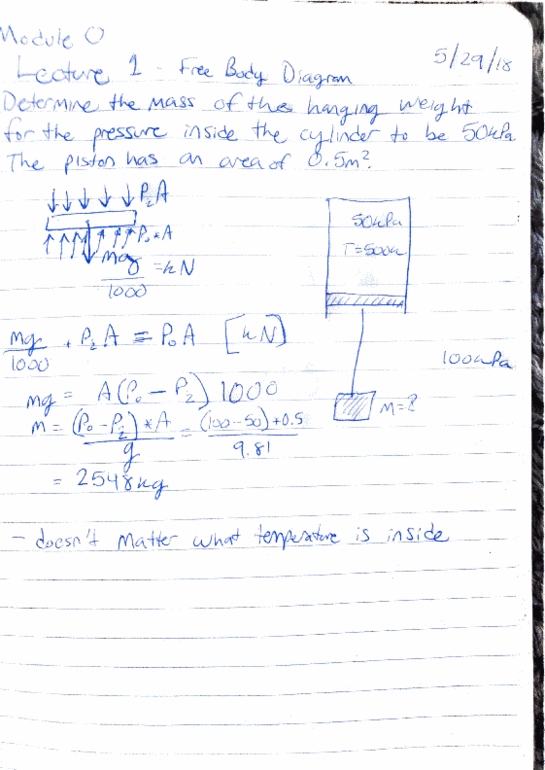 Module 0
5/29/18
Lecture 1 - Free Body Diagram
Determine the mass of the hanging weight
for the pressure inside the cylinder to be 50kPa.
The piston has an area of 0.5m².
↓↓↓↓↓ P₂A
↑↑↑↑↑↑↑ P₀*A
mg/1000 = kN
50kPa
T=500k
mg/1000 + P₂A = P₀A [kN]
100kPa
mg = A(P₀ - P₂) 1000
m = (P₀ - P₂)*A/g = (100-50)*0.5/9.81
m=?
= 2548kg
- doesn't matter what temperature is inside